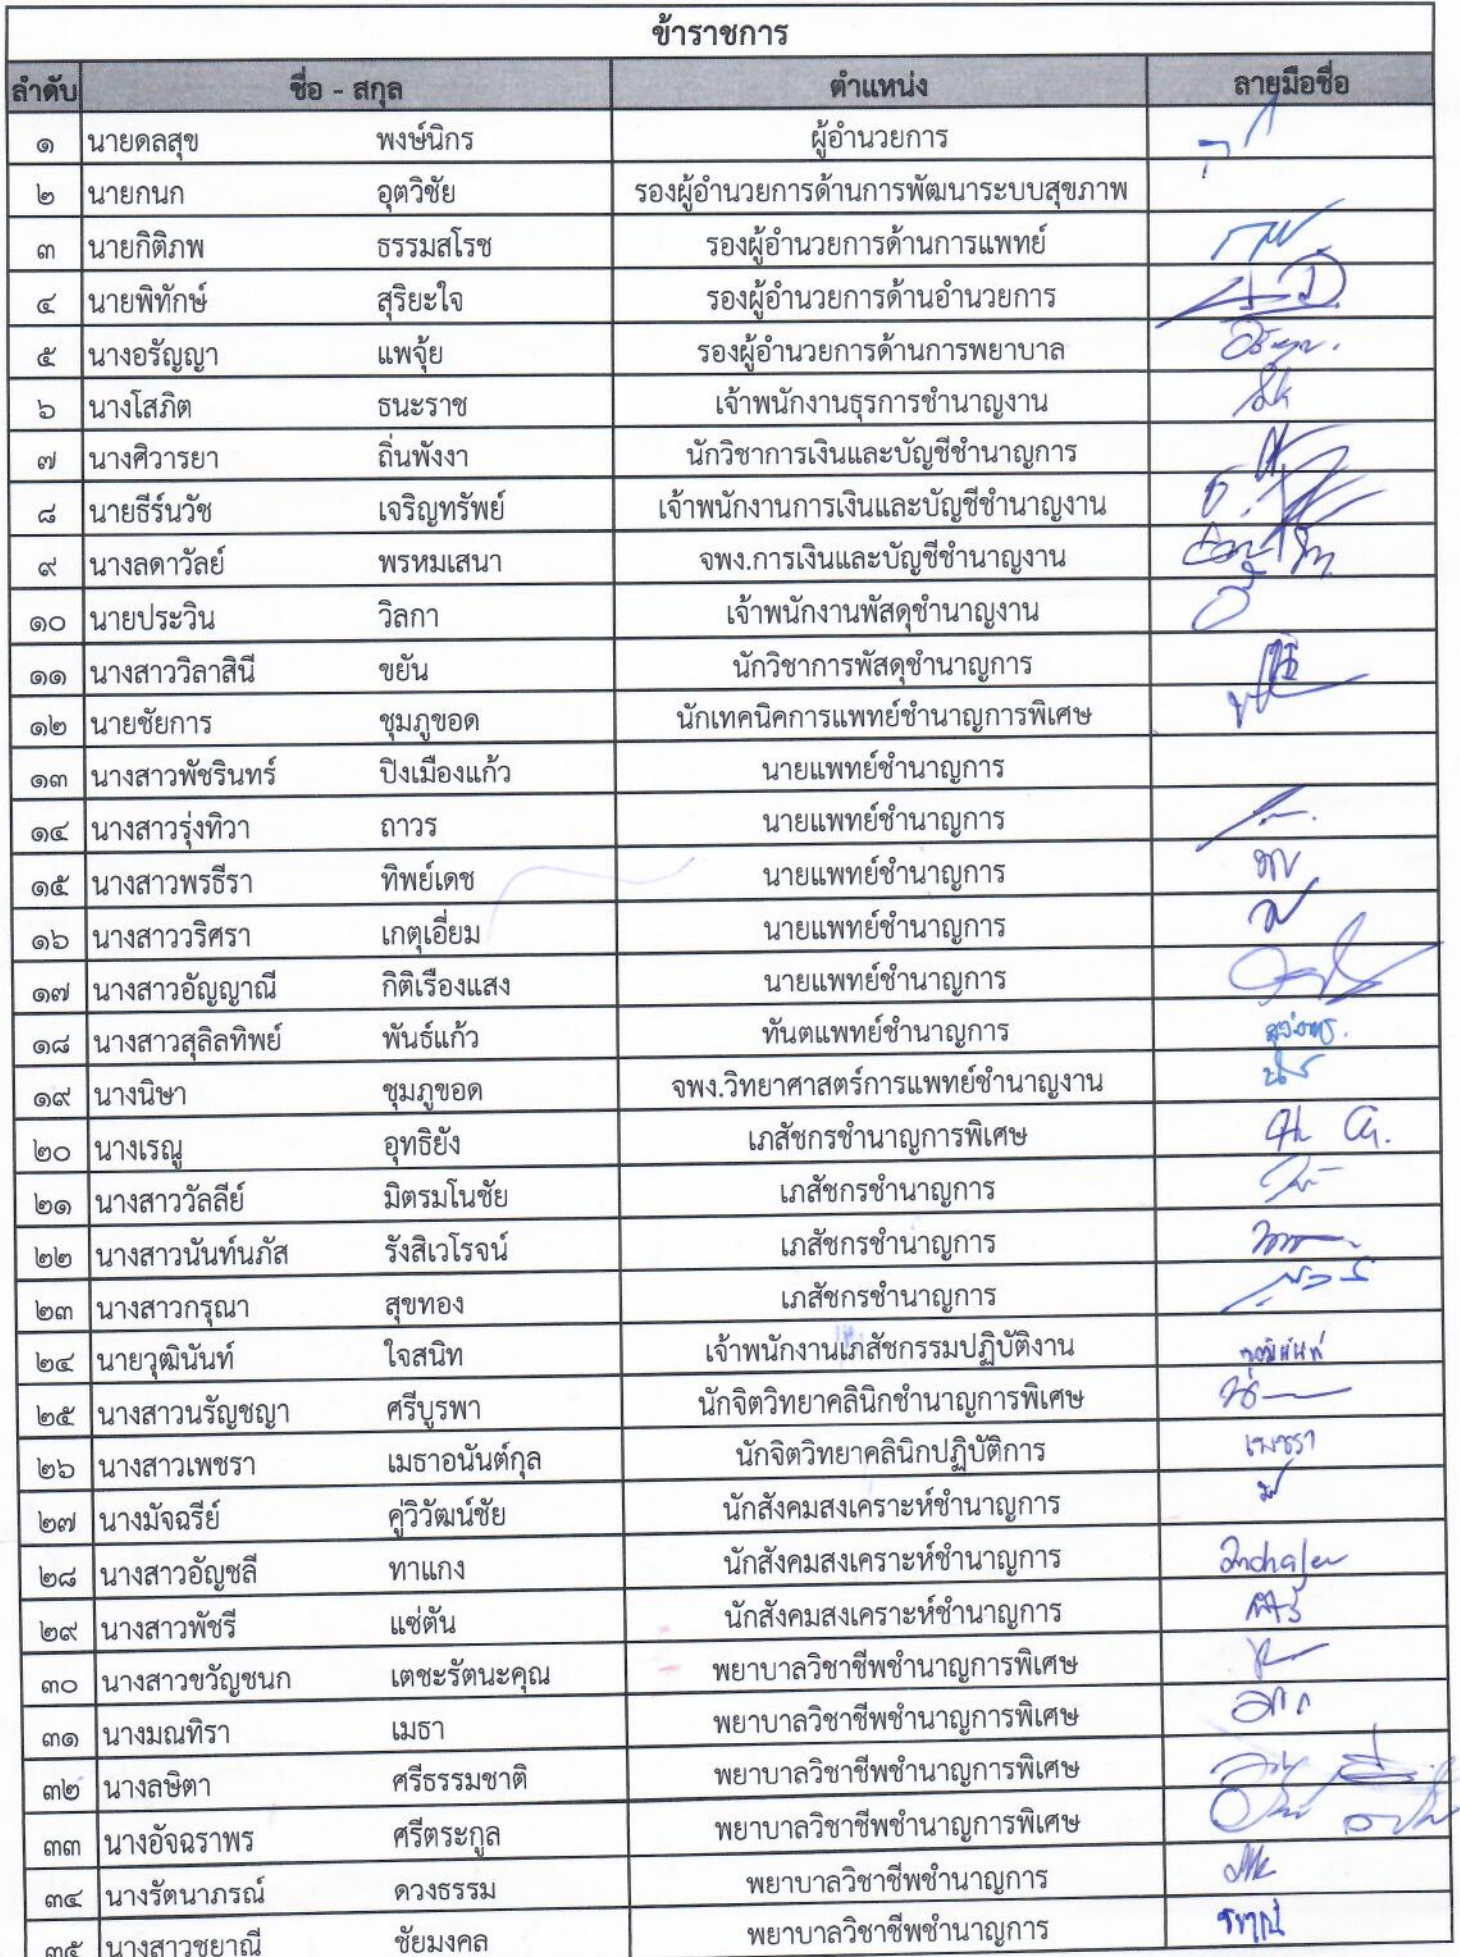 ข้าราชการ
ลำดับ ชื่อ - สกุล ตำแหน่ง ลายมือชื่อ
๑ นายดลสุข พงษ์นิกร ผู้อำนวยการ
๒ นายกนก อุตวิชัย รองผู้อำนวยการด้านการพัฒนาระบบสุขภาพ
๓ นายกิติภพ ธรรมสโรช รองผู้อำนวยการด้านการแพทย์
๔ นายพิทักษ์ สุริยะใจ รองผู้อำนวยการด้านอำนวยการ
๕ นางอรัญญา แพจุ้ย รองผู้อำนวยการด้านการพยาบาล
๖ นางโสภิต ธนะราช เจ้าพนักงานธุรการชำนาญงาน
๗ นางศิวารยา ถิ่นพังงา นักวิชาการเงินและบัญชีชำนาญการ
๘ นายธีร์นวัช เจริญทรัพย์ เจ้าพนักงานการเงินและบัญชีชำนาญงาน
๙ นางลดาวัลย์ พรหมเสนา จพง.การเงินและบัญชีชำนาญงาน
๑๐ นายประวิน วิลกา เจ้าพนักงานพัสดุชำนาญงาน
๑๑ นางสาววิลาสินี ขยัน นักวิชาการพัสดุชำนาญการ
๑๒ นายชัยการ ชุมภูขอด นักเทคนิคการแพทย์ชำนาญการพิเศษ
๑๓ นางสาวพัชรินทร์ ปิงเมืองแก้ว นายแพทย์ชำนาญการ
๑๔ นางสาวรุ่งทิวา ถาวร นายแพทย์ชำนาญการ
๑๕ นางสาวพรธีรา ทิพย์เดช นายแพทย์ชำนาญการ
๑๖ นางสาววริศรา เกตุเอี่ยม นายแพทย์ชำนาญการ
๑๗ นางสาวอัญญาณี กิติเรืองแสง นายแพทย์ชำนาญการ
๑๘ นางสาวสุลิลทิพย์ พันธ์แก้ว ทันตแพทย์ชำนาญการ
๑๙ นางนิษา ชุมภูขอด จพง.วิทยาศาสตร์การแพทย์ชำนาญงาน
๒๐ นางเรณู อุทธิยัง เภสัชกรชำนาญการพิเศษ
๒๑ นางสาววัลลีย์ มิตรมโนชัย เภสัชกรชำนาญการ
๒๒ นางสาวนันท์นภัส รังสิเวโรจน์ เภสัชกรชำนาญการ
๒๓ นางสาวกรุณา สุขทอง เภสัชกรชำนาญการ
๒๔ นายวุฒินันท์ ใจสนิท เจ้าพนักงานเภสัชกรรมปฏิบัติงาน วุฒินันท์
๒๕ นางสาวนรัญชญา ศรีบูรพา นักจิตวิทยาคลินิกชำนาญการพิเศษ
๒๖ นางสาวเพชรา เมธาอนันต์กุล นักจิตวิทยาคลินิกปฏิบัติการ เพชรา
๒๗ นางมัจฉรีย์ คู่วิวัฒน์ชัย นักสังคมสงเคราะห์ชำนาญการ
๒๘ นางสาวอัญชลี ทาแกง นักสังคมสงเคราะห์ชำนาญการ
๒๙ นางสาวพัชรี แซ่ตัน นักสังคมสงเคราะห์ชำนาญการ
๓๐ นางสาวขวัญชนก เตชะรัตนะคุณ พยาบาลวิชาชีพชำนาญการพิเศษ
๓๑ นางมณทิรา เมธา พยาบาลวิชาชีพชำนาญการพิเศษ
๓๒ นางลษิตา ศรีธรรมชาติ พยาบาลวิชาชีพชำนาญการพิเศษ
๓๓ นางอัจฉราพร ศรีตระกูล พยาบาลวิชาชีพชำนาญการพิเศษ
๓๔ นางรัตนาภรณ์ ดวงธรรม พยาบาลวิชาชีพชำนาญการ
๓๕ นางสาวชยาณี ชัยมงคล พยาบาลวิชาชีพชำนาญการ